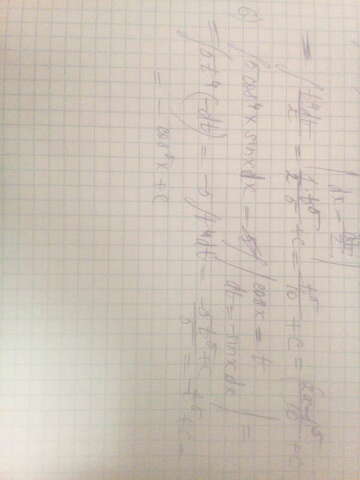 dx = dt/2
= ∫ t⁴dt/2 = 1/2 t⁵/5 + C = t⁵/10 + C = (2x-1)⁵/10 + C
б) ∫5cos⁴x sinx dx = | cosx = t
dt = -sinx dx | =
= ∫5t⁴(-dt) = -5∫t⁴dt = -5t⁵/5 + C = -t⁵ + C =
= -cos⁵x + C